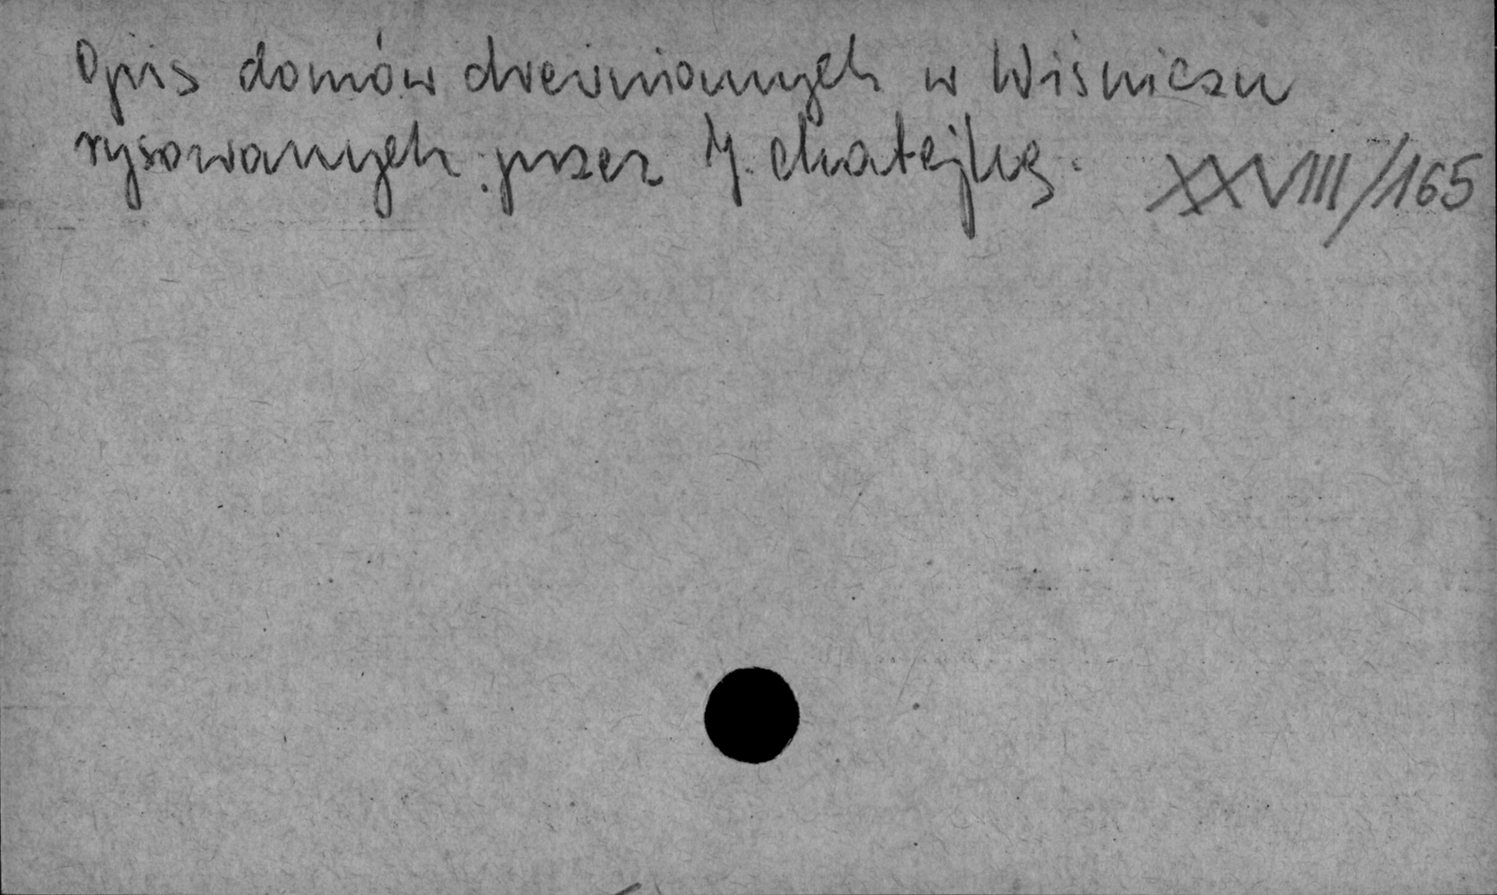 Opis domów drewnianych w Wiśniczu
rysowanych przez J. Matejkę. XXVIII/165